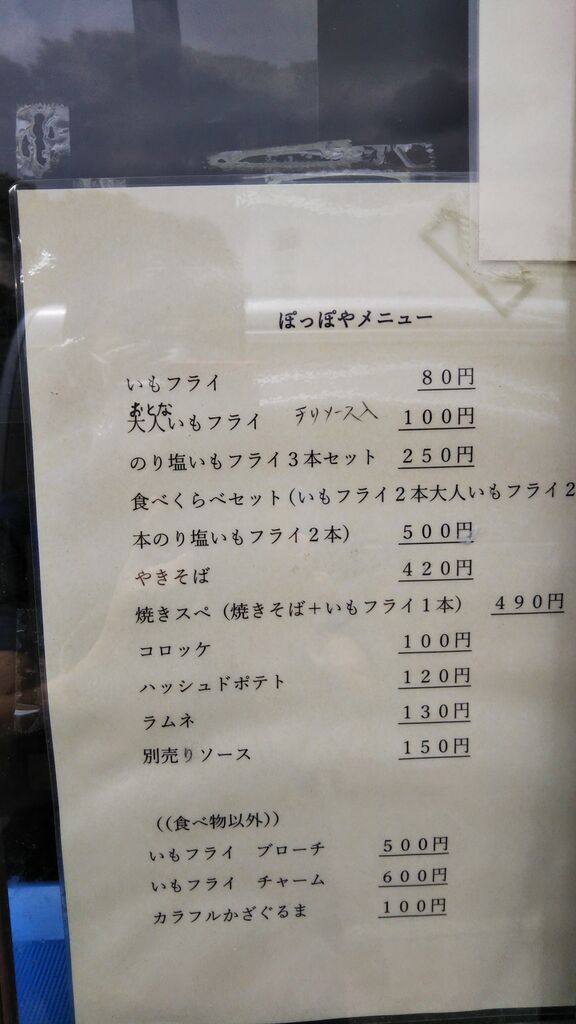 ぽっぽやメニュー
いもフライ 80円
おとな
大人いもフライ チリソース入 100円
のり塩いもフライ3本セット 250円
食べくらべセット(いもフライ2本大人いもフライ2
本のり塩いもフライ2本) 500円
やきそば 420円
焼きスペ(焼きそば+いもフライ1本) 490円
コロッケ 100円
ハッシュドポテト 120円
ラムネ 130円
別売りソース 150円
((食べ物以外))
いもフライ ブローチ 500円
いもフライ チャーム 600円
カラフルかざぐるま 100円